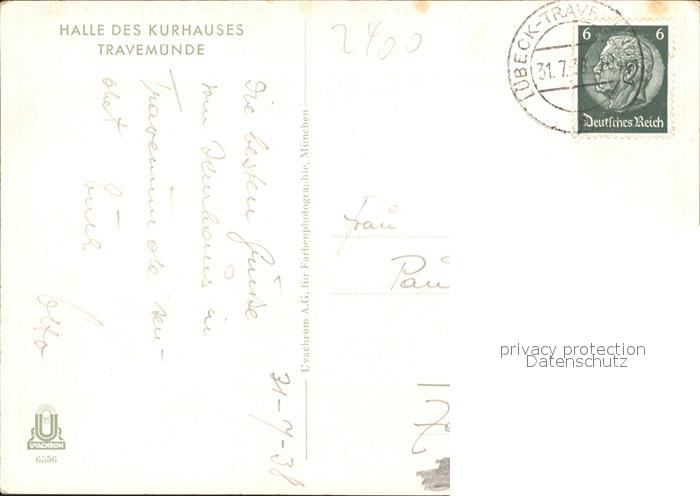 HALLE DES KURHAUSES
TRAVEMÜNDE
2400
LÜBECK-TRAVE
31.7.38
6 6
Deutsches Reich
Die besten Grüße
vom Kurhaus in
Travemünde sen-
det Euch
Otto
31-7-38
Uvachrom A.G. für Farbenphotographie, München
Frau
Pau
privacy protection
Datenschutz
UVACHROM
6556